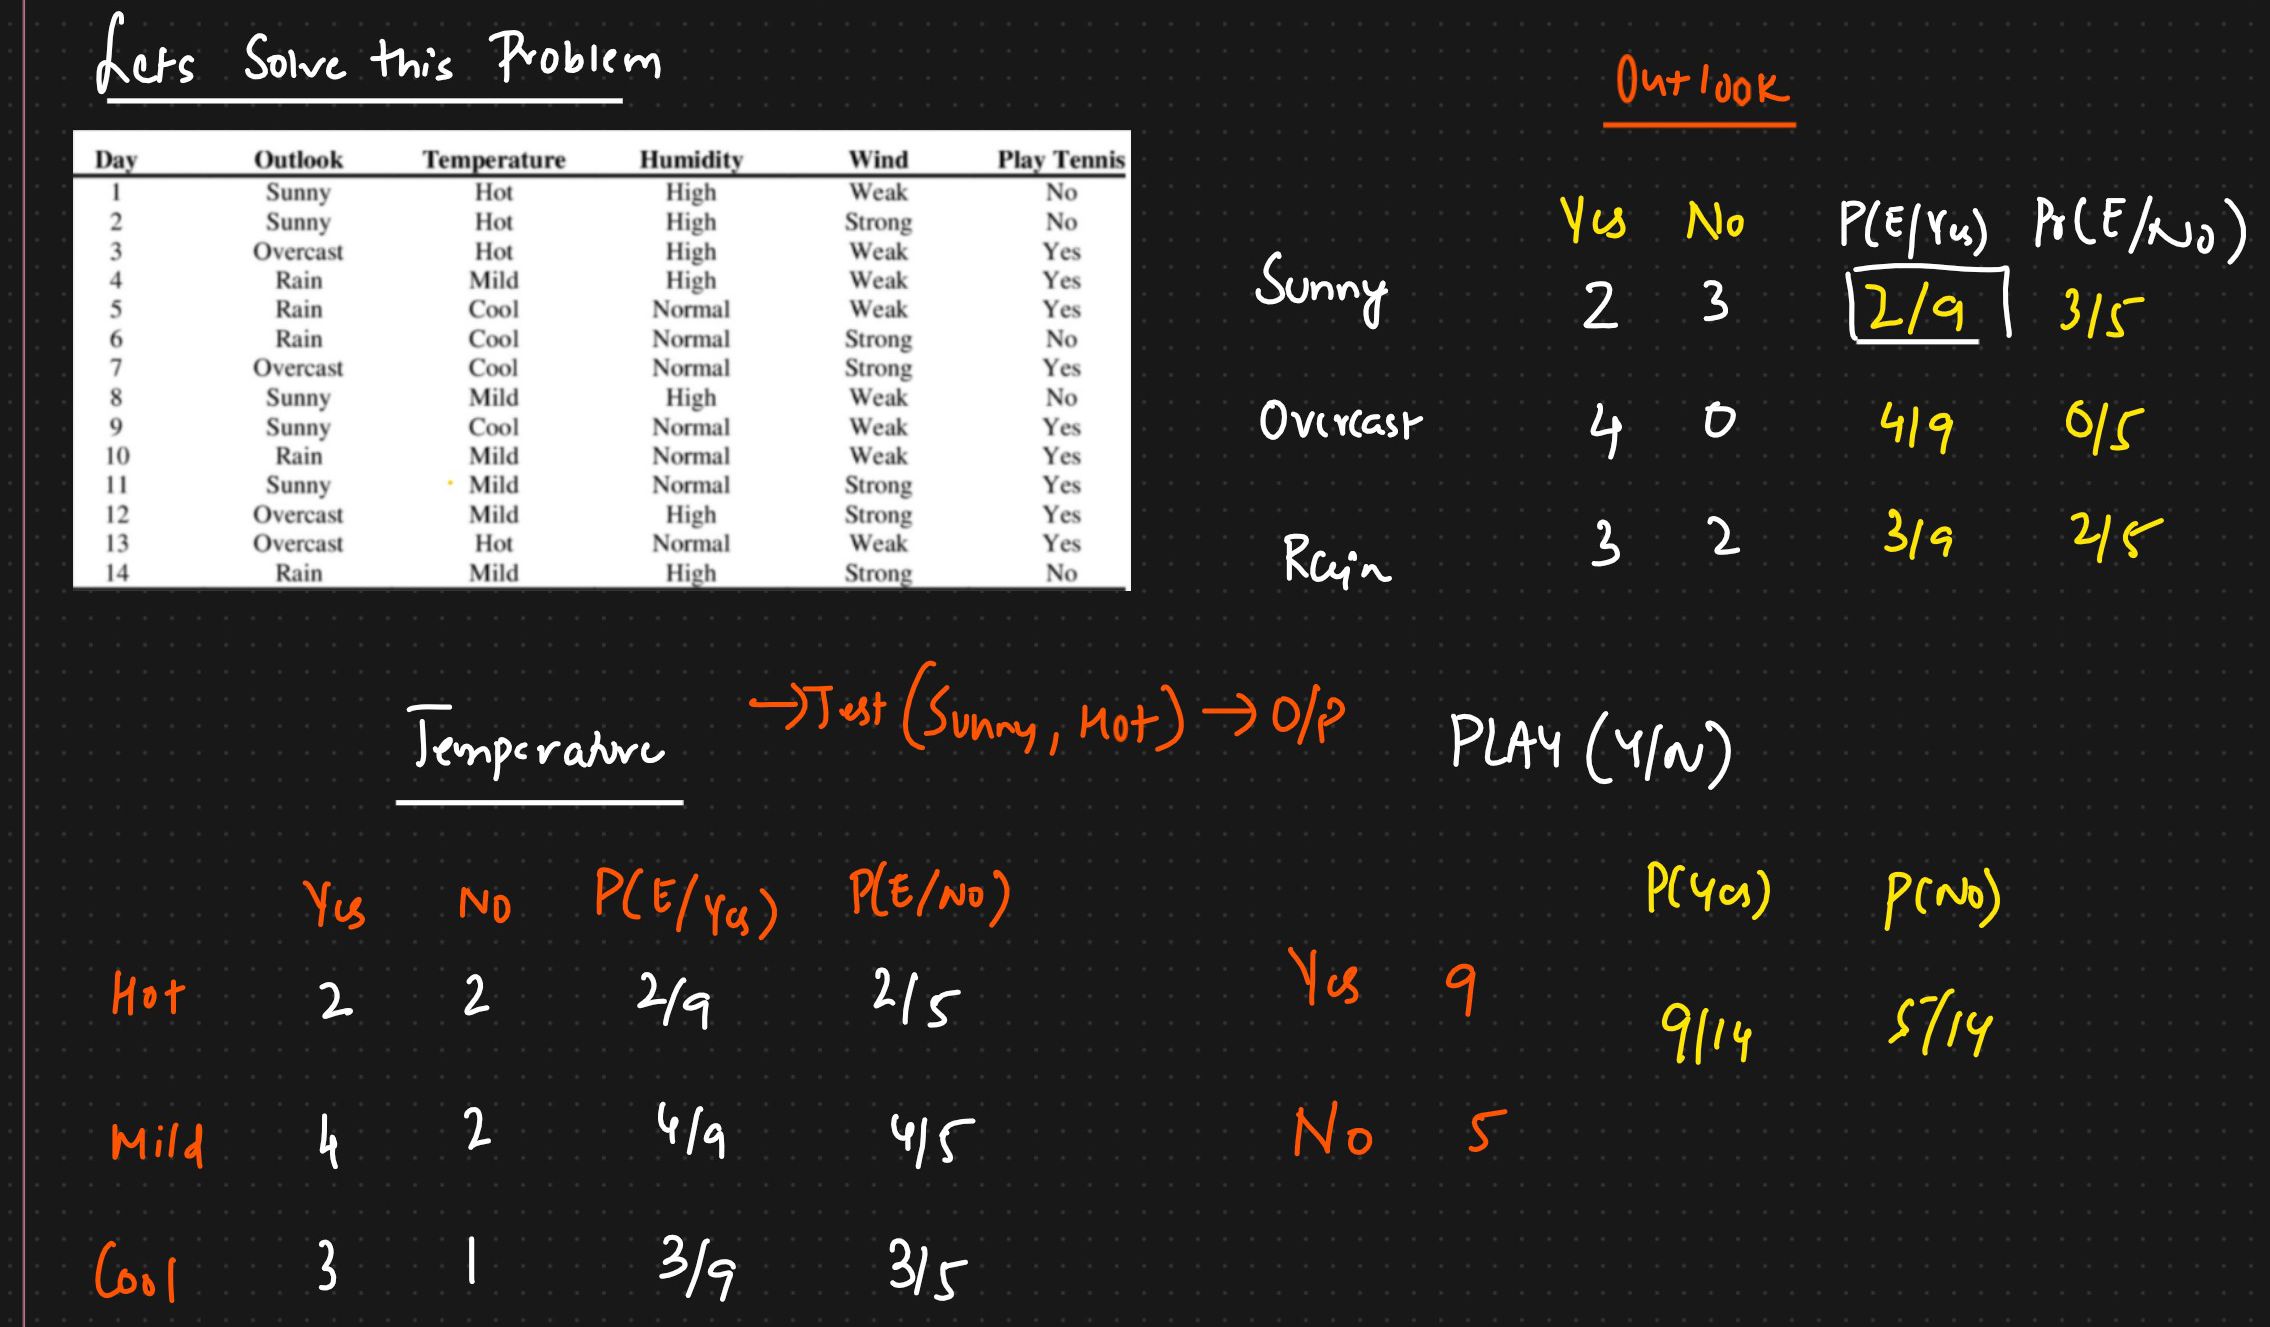 Lets Solve this Problem
Day Outlook Temperature Humidity Wind Play Tennis
1 Sunny Hot High Weak No
2 Sunny Hot High Strong No
3 Overcast Hot High Weak Yes
4 Rain Mild High Weak Yes
5 Rain Cool Normal Weak Yes
6 Rain Cool Normal Strong No
7 Overcast Cool Normal Strong Yes
8 Sunny Mild High Weak No
9 Sunny Cool Normal Weak Yes
10 Rain Mild Normal Weak Yes
11 Sunny Mild Normal Strong Yes
12 Overcast Mild High Strong Yes
13 Overcast Hot Normal Weak Yes
14 Rain Mild High Strong No
Outlook
Yes No P(E/Yes) Pr(E/No)
Sunny 2 3 2/9 3/5
Overcast 4 0 4/9 0/5
Rain 3 2 3/9 2/5
→ Test (Sunny, Hot) → O/P
Temperature
Yes No P(E/Yes) P(E/No)
Hot 2 2 2/9 2/5
Mild 4 2 4/9 4/5
Cool 3 1 3/9 3/5
PLAY (Y/N)
P(Yes) P(No)
Yes 9 9/14 5/14
No 5